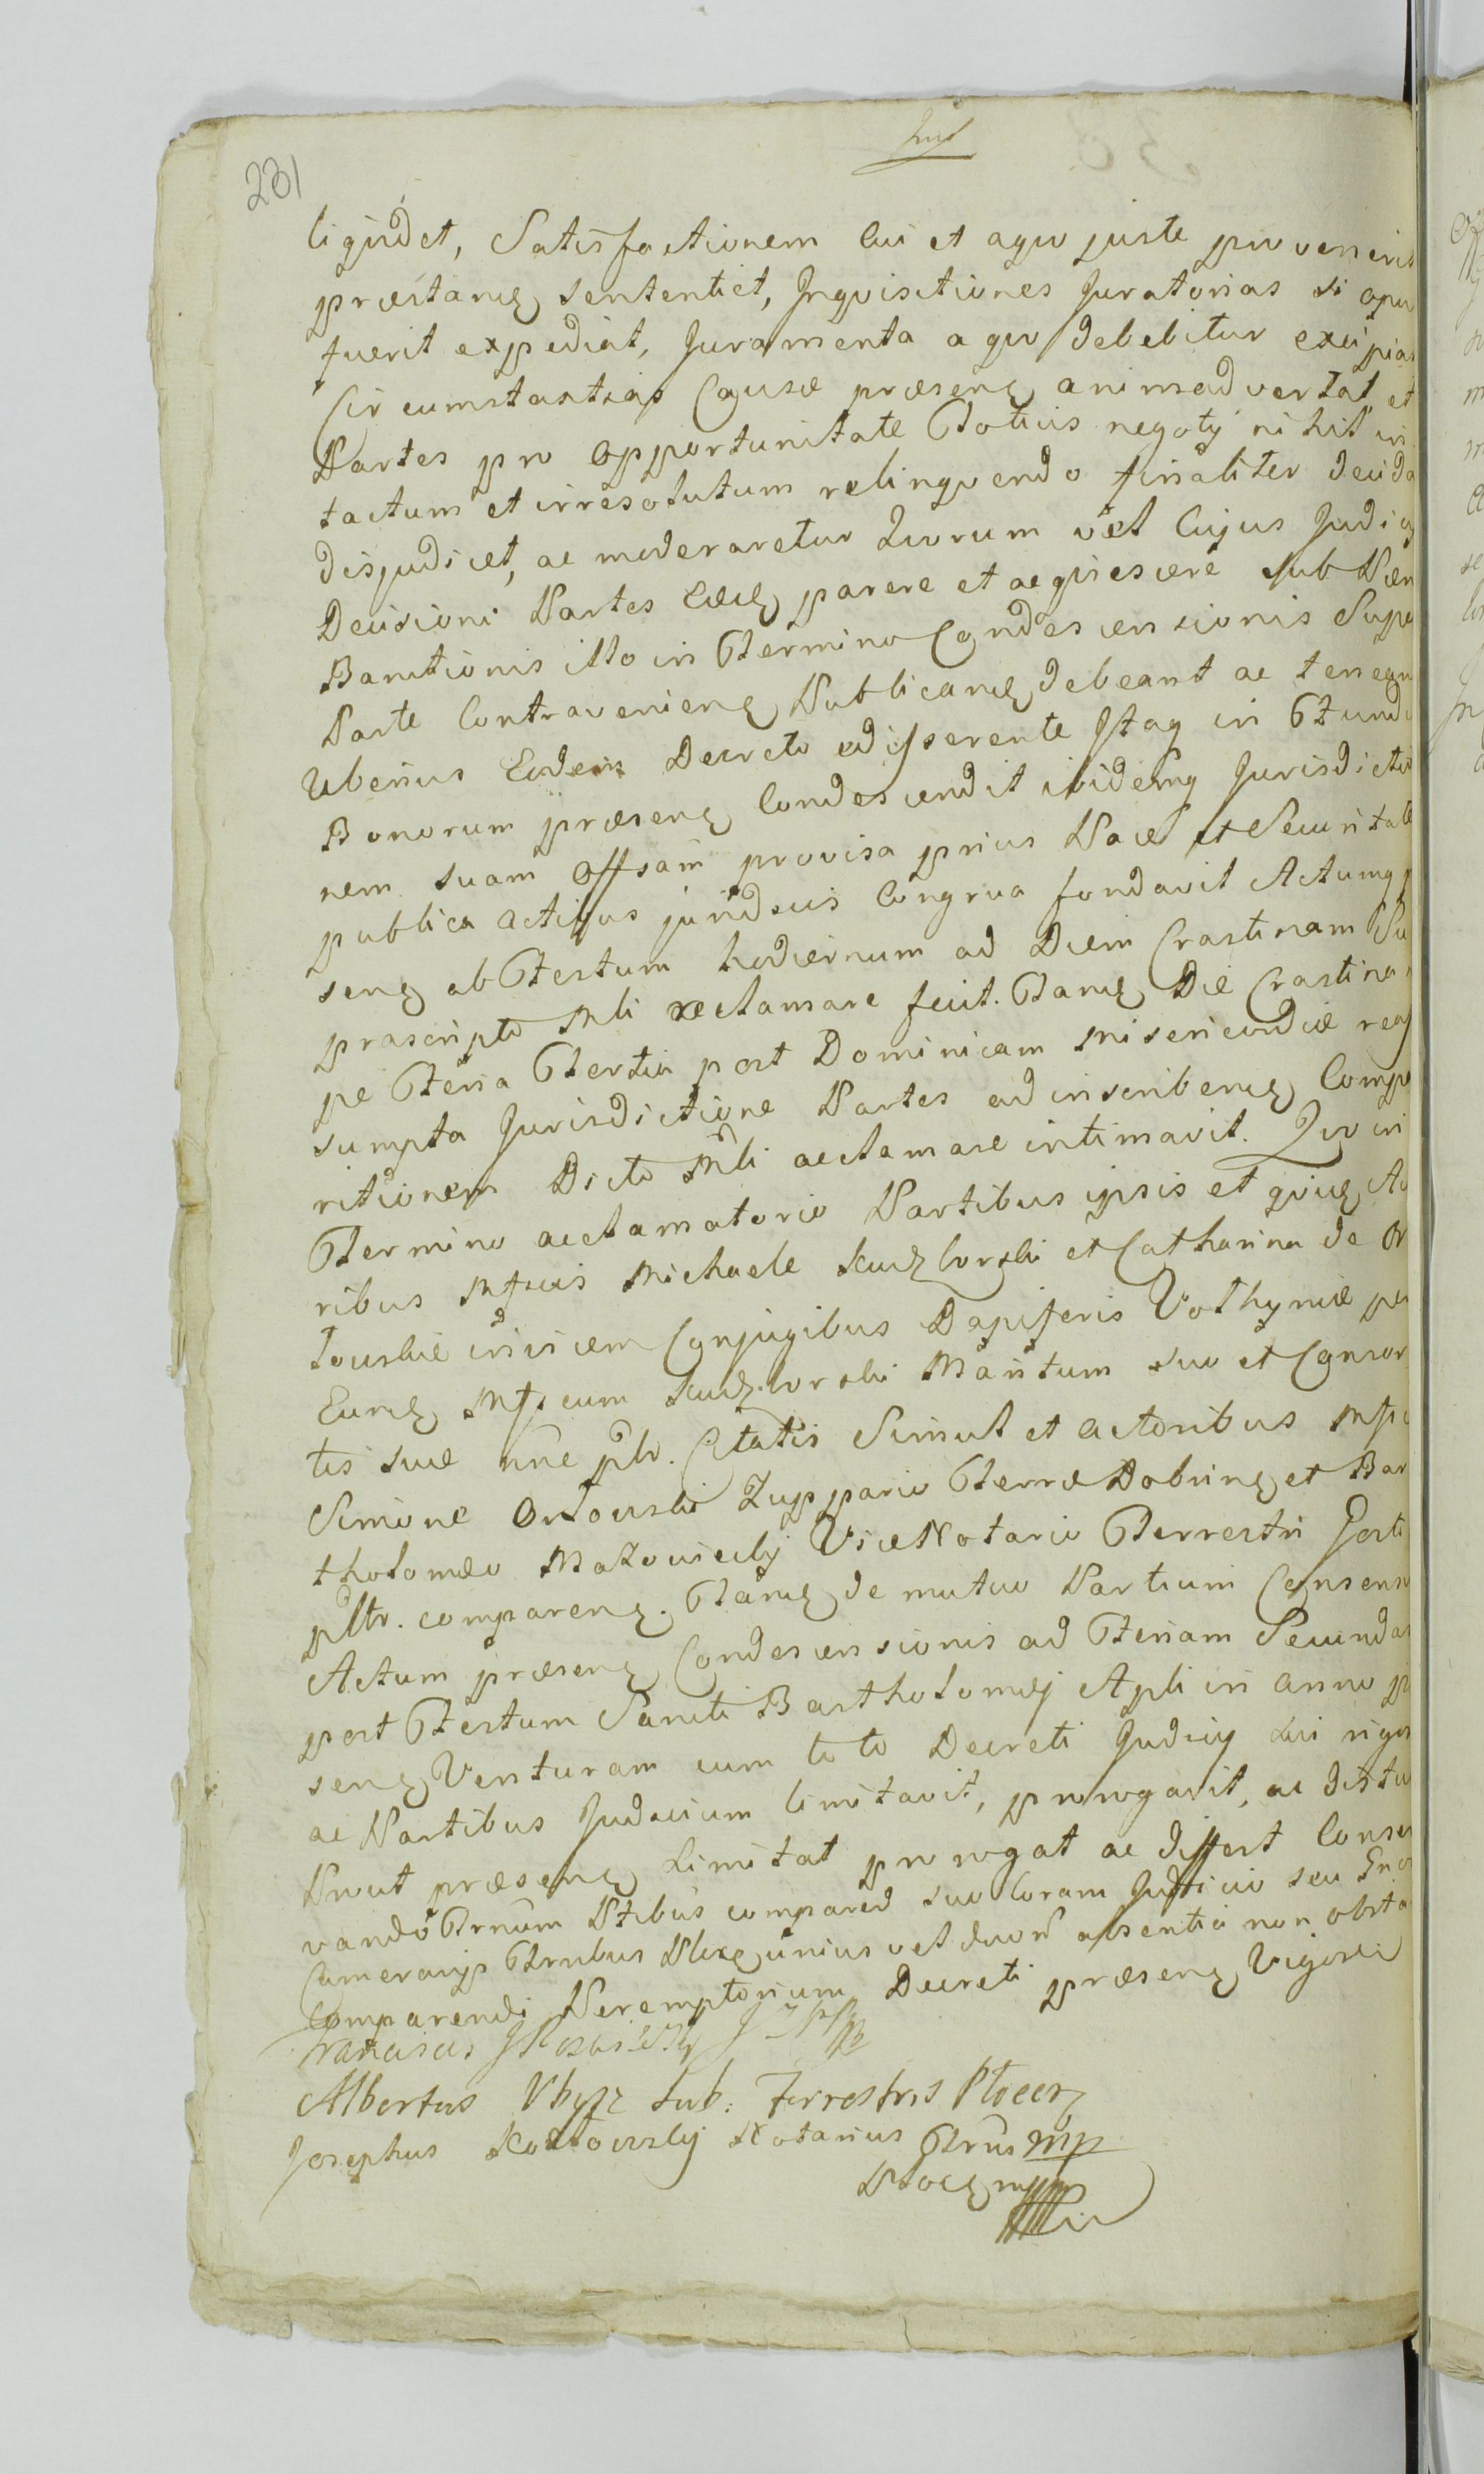 231
liquidet, Satisfactionem cui et a quo juste provenerit
præstanđ sententiet, Inquisitiones Juratorias si opu
fuerit expediat, Juramenta a quo debebitur excipiat
Circumstantias Causæ præsenę animadvertat et
Partes pro opportunitate Totius negotÿ nihil in
tactum et irresolutum relinquendo finaliter decida
disjudicet, ac moderaretur Quorum vel Cujus Judicÿ
Decisioni Partes Eædę parere et acquiescere sub Pæn
Bannitionis illo in Termino Condescensionis Supe
Parte Contravenienę Publicandę debeant ac tenean
Uberius Eodem Decreto edisserente Itaq in Fundu
Bonorum præsenę Condescendit ibidemq Jurisdictio
nem suam Offsam provisa prius Pace et Securitate
publica actibus juridicis Congrua fundavit Actumq
senę ab Festum hodiernum ad Diem Crastinam Su
prascripto Mli acclamare fecit. Tandę Die Crastina
pe Feria Tertia post Dominicam Misericordiæ reas
sumpta Jurisdictione Partes ad inscribendę Compa
ritionem Dicto Mli acclamare intimavit. Quo in
Termino acclamatorio Partibus ipsis et quidę Ac
ribus Mfcis Michaele et Catharina de Or
łowskie invicem Conjugibus Dapiferis Volhyniæ per
Eundę Mfcum Maritum suo et Consor
tis suæ nne plr. Citatis Simul et actoribus Mfci
Simone Orłowski Zuppario Terræ Dobrinę et Bar
tholomæo Mazowiecki ViceNotario Terrestri Gosti
pltr. comparenę. Tandę de mutuo Partium Consensu
Actum præsenę Condescensionis ad Feriam Secundam
post Festum Sancti Bartholomæj Apli in anno præ
senę Venturam cum toto Decreti Judicÿ sui rigor
ac Partibus Judicium limitavit, prorogavit, ac distu
Prout præsenę Limitat prorogat ac differt Conser
vando Trnum Ptibus compared suo Coram Judicio seu
Trribus unius vel duor absentia non obsta
Comparendi Peremptorium Decreti præsenę Vigore
Franciscus
Albertus Sub: Terrestris Płocen
Josephus Kozłowskÿ Notarius Trris mp
Płocę mp